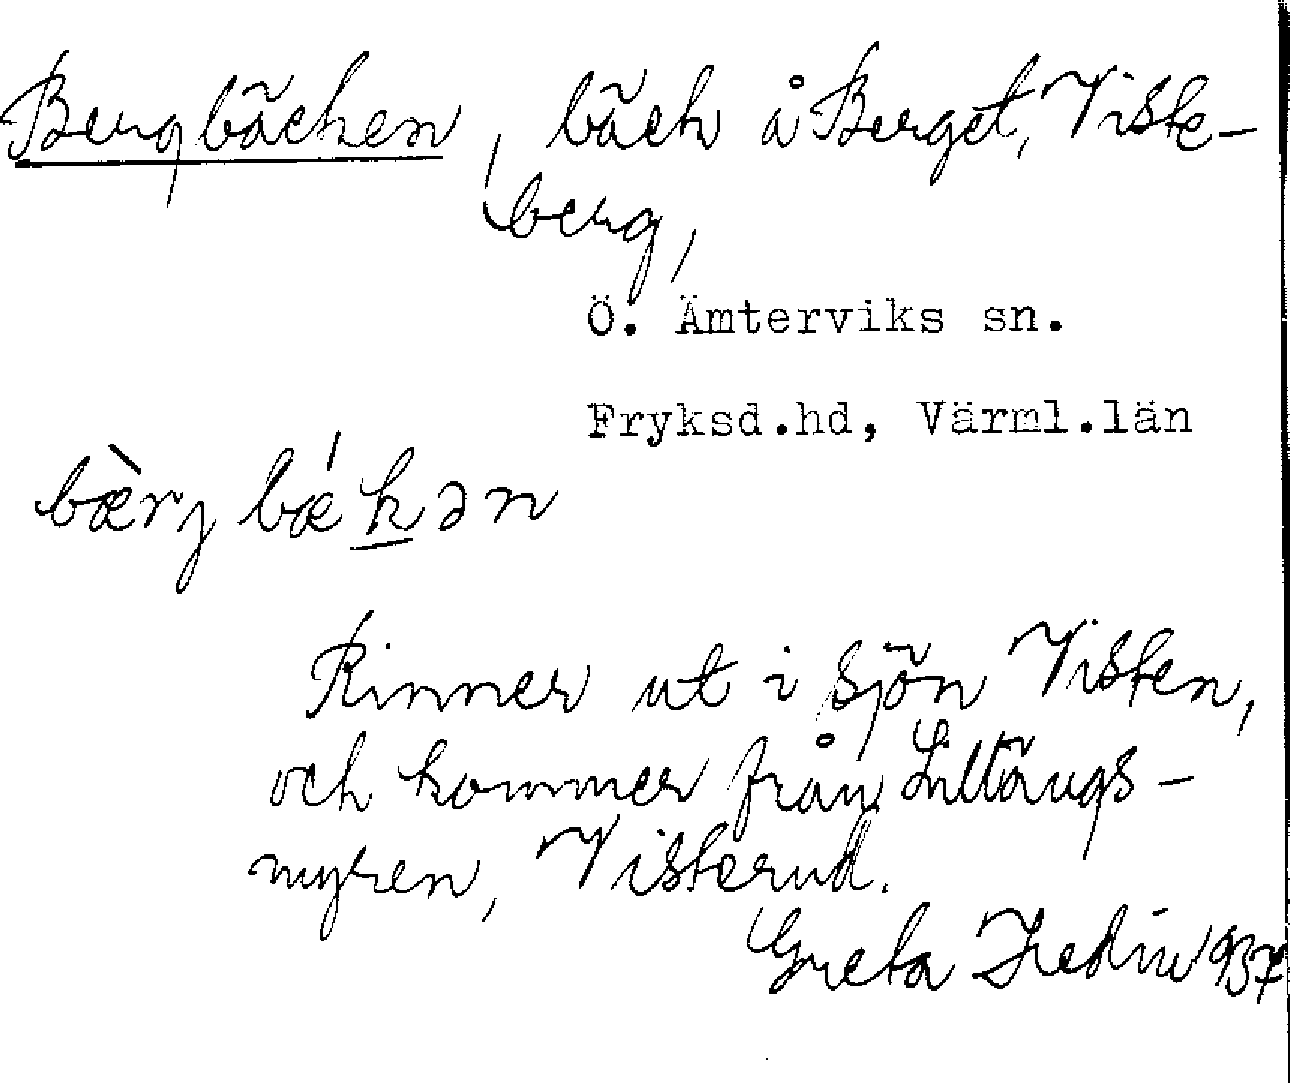 Bergbäcken, bäck å Berget, Viste-
berg,
Ö. Ämterviks sn.
Fryksd.hd, Värml.län
bæ̀rj bǽkən
Rinner ut i sjön Visten,
och kommer från Lilltängs-
myren, Visterud.
Greta Hedin 1937